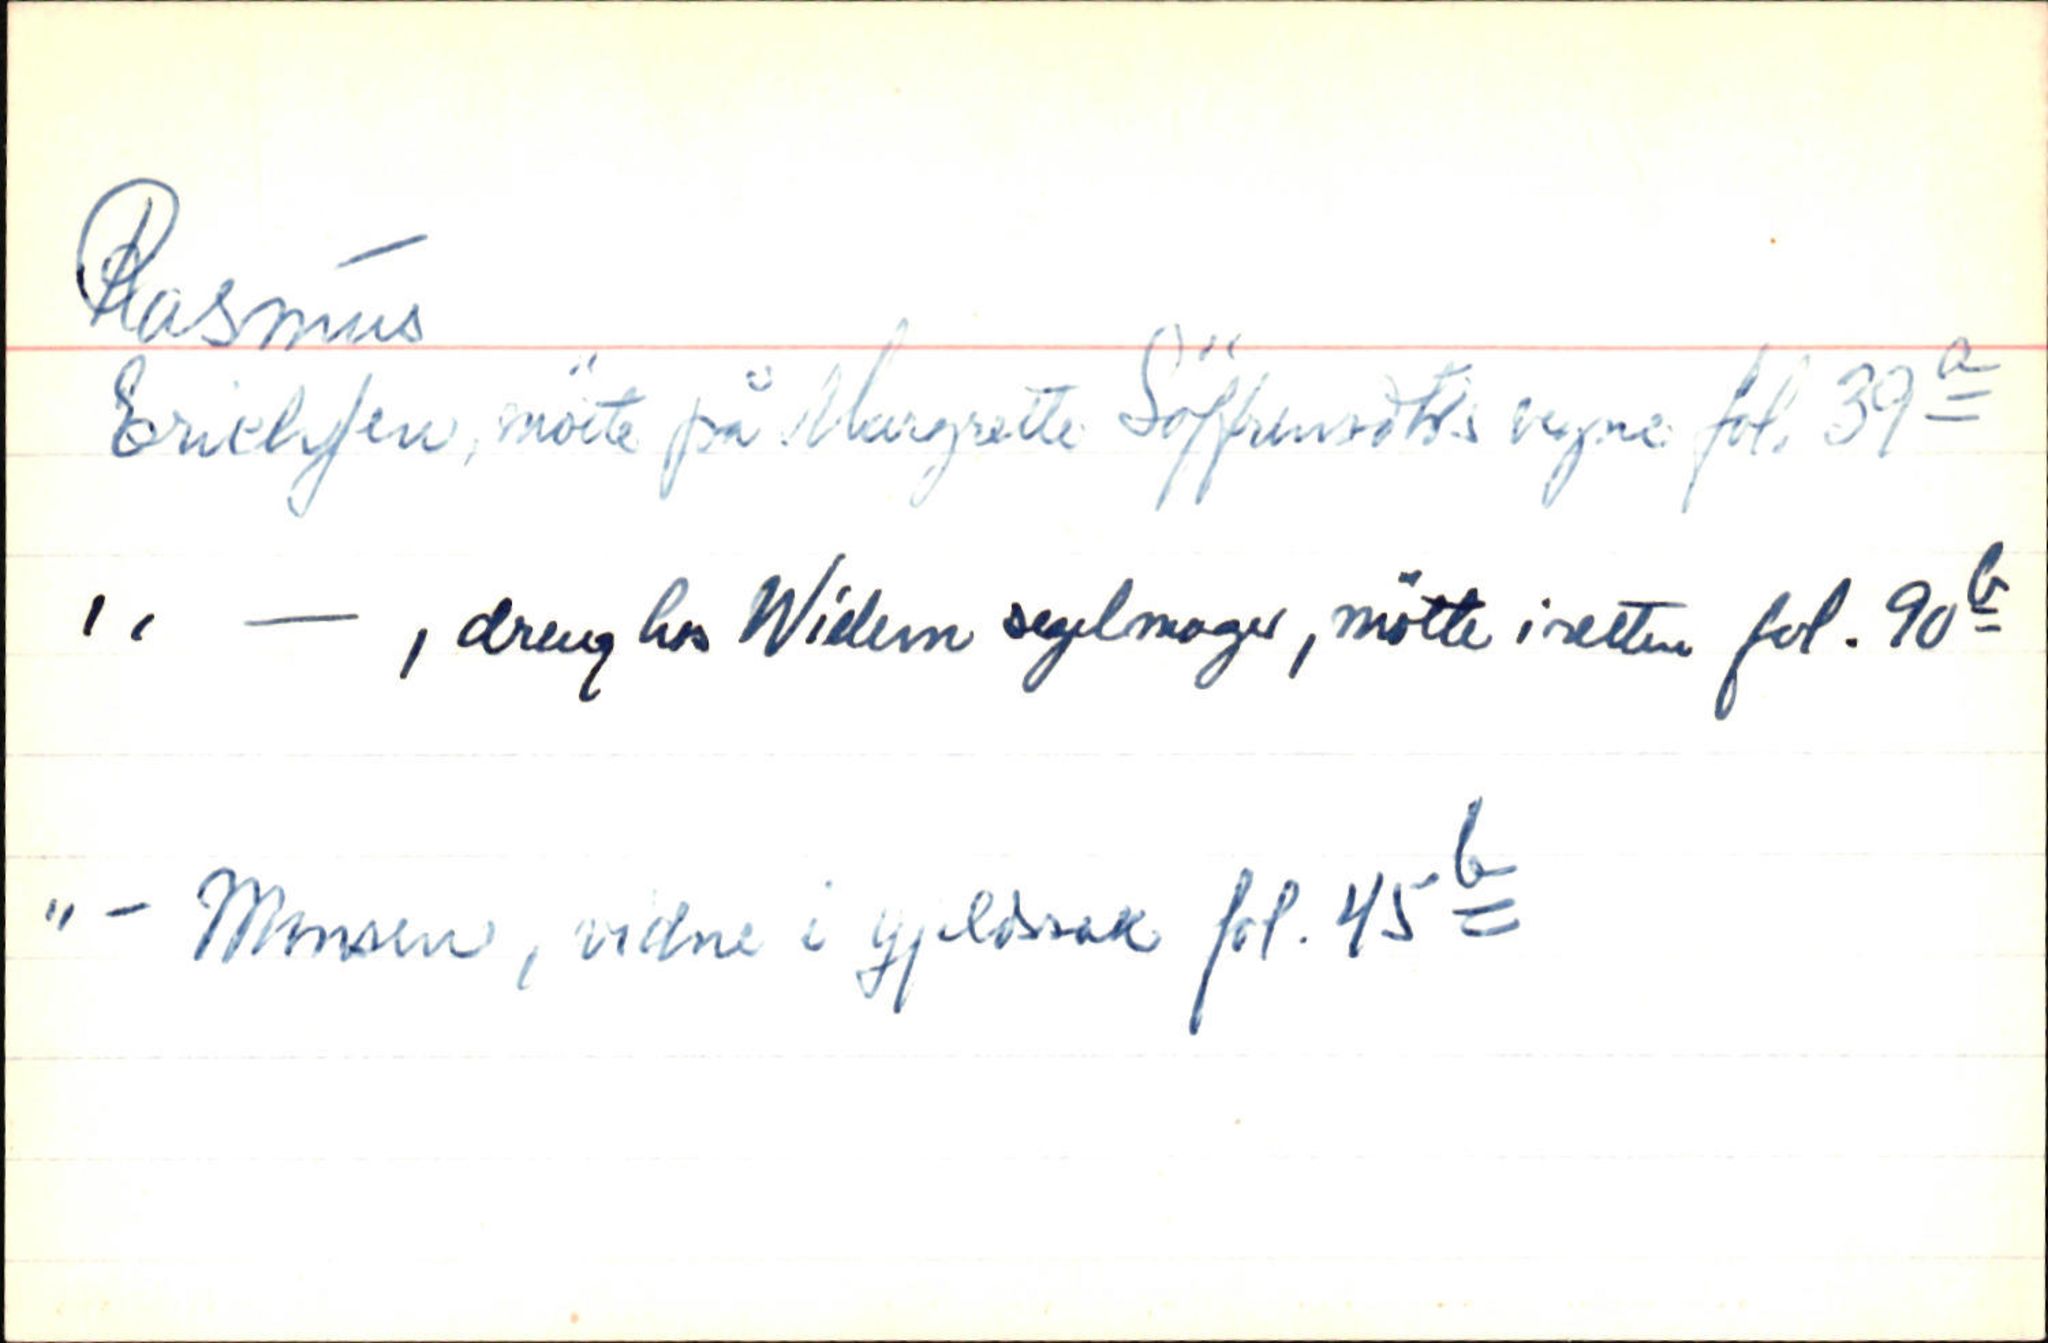 Rasmus
Erichsen, mötte på Margrette Söffrensdtrs vegne fol. 39a
" —, dreng hos Widem segelmager, mötte i retten fol. 90b
" - Monsen, vidne i gjeldssak fol. 45b